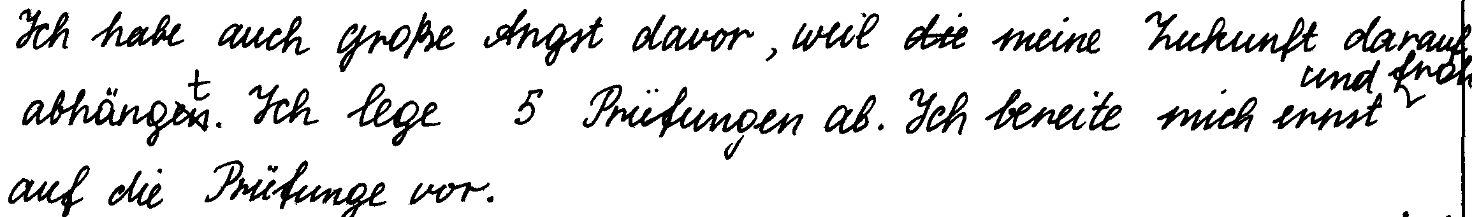 Ich habe auch große Angst davor, weil meine Zukunft darauf
abhängt. Ich lege 5 Prüfungen ab. Ich bereite mich ernst und froh
auf die Prüfunge vor.